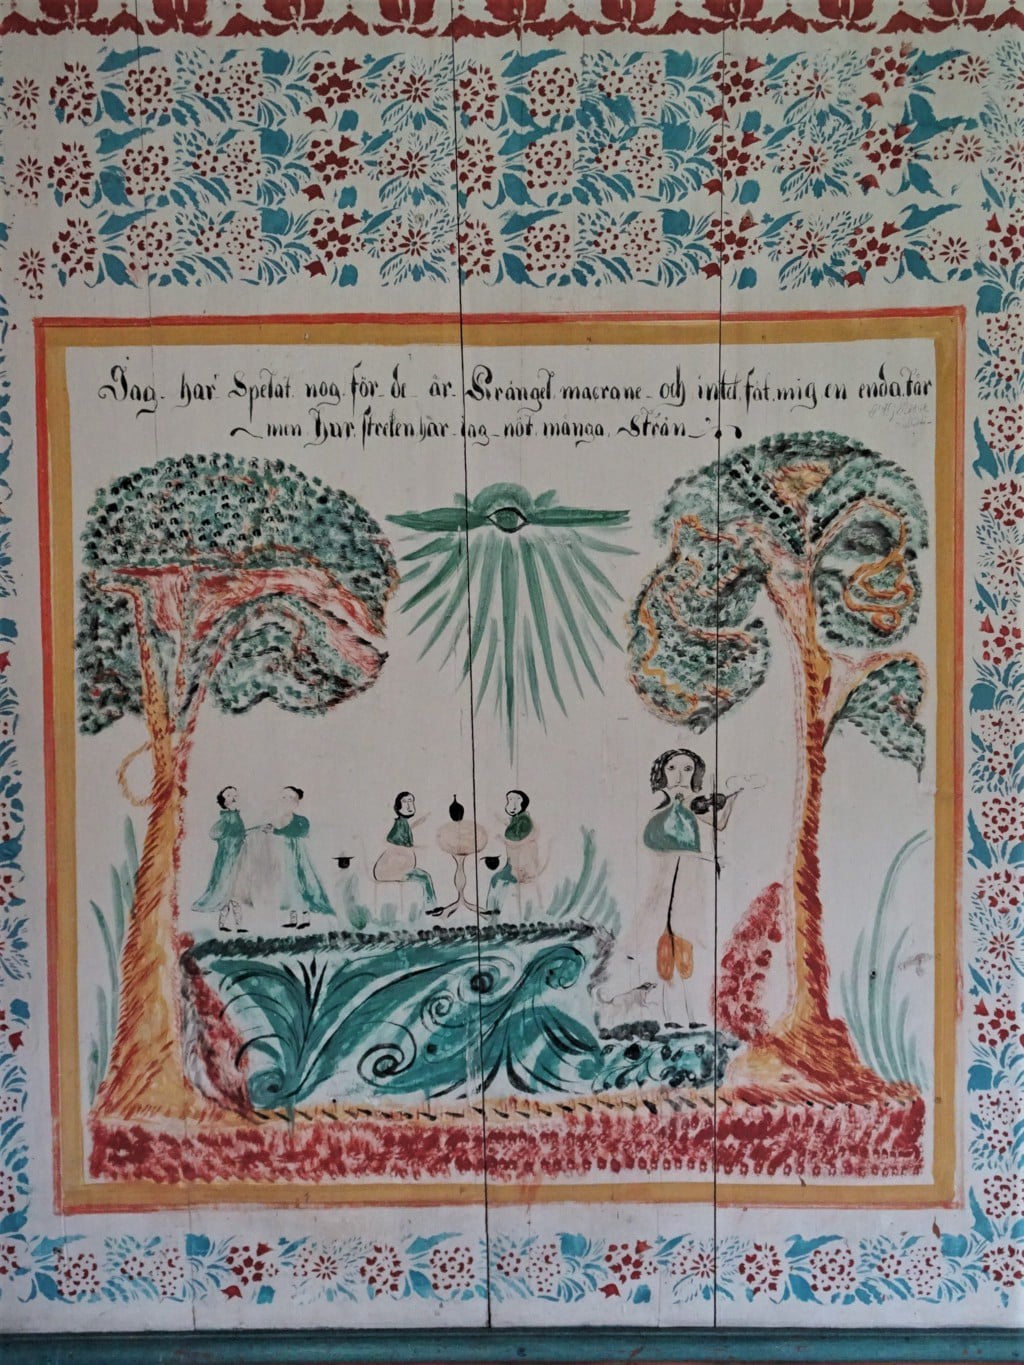 Jag har Spelat nog för de är Krångel macrane och intet fåt mig en enda tår
men hur streken här jag nöt många Strån